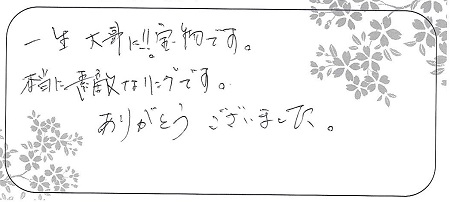 一生大事に!!宝物です。
本当に素敵なリングです。
ありがとうございました。